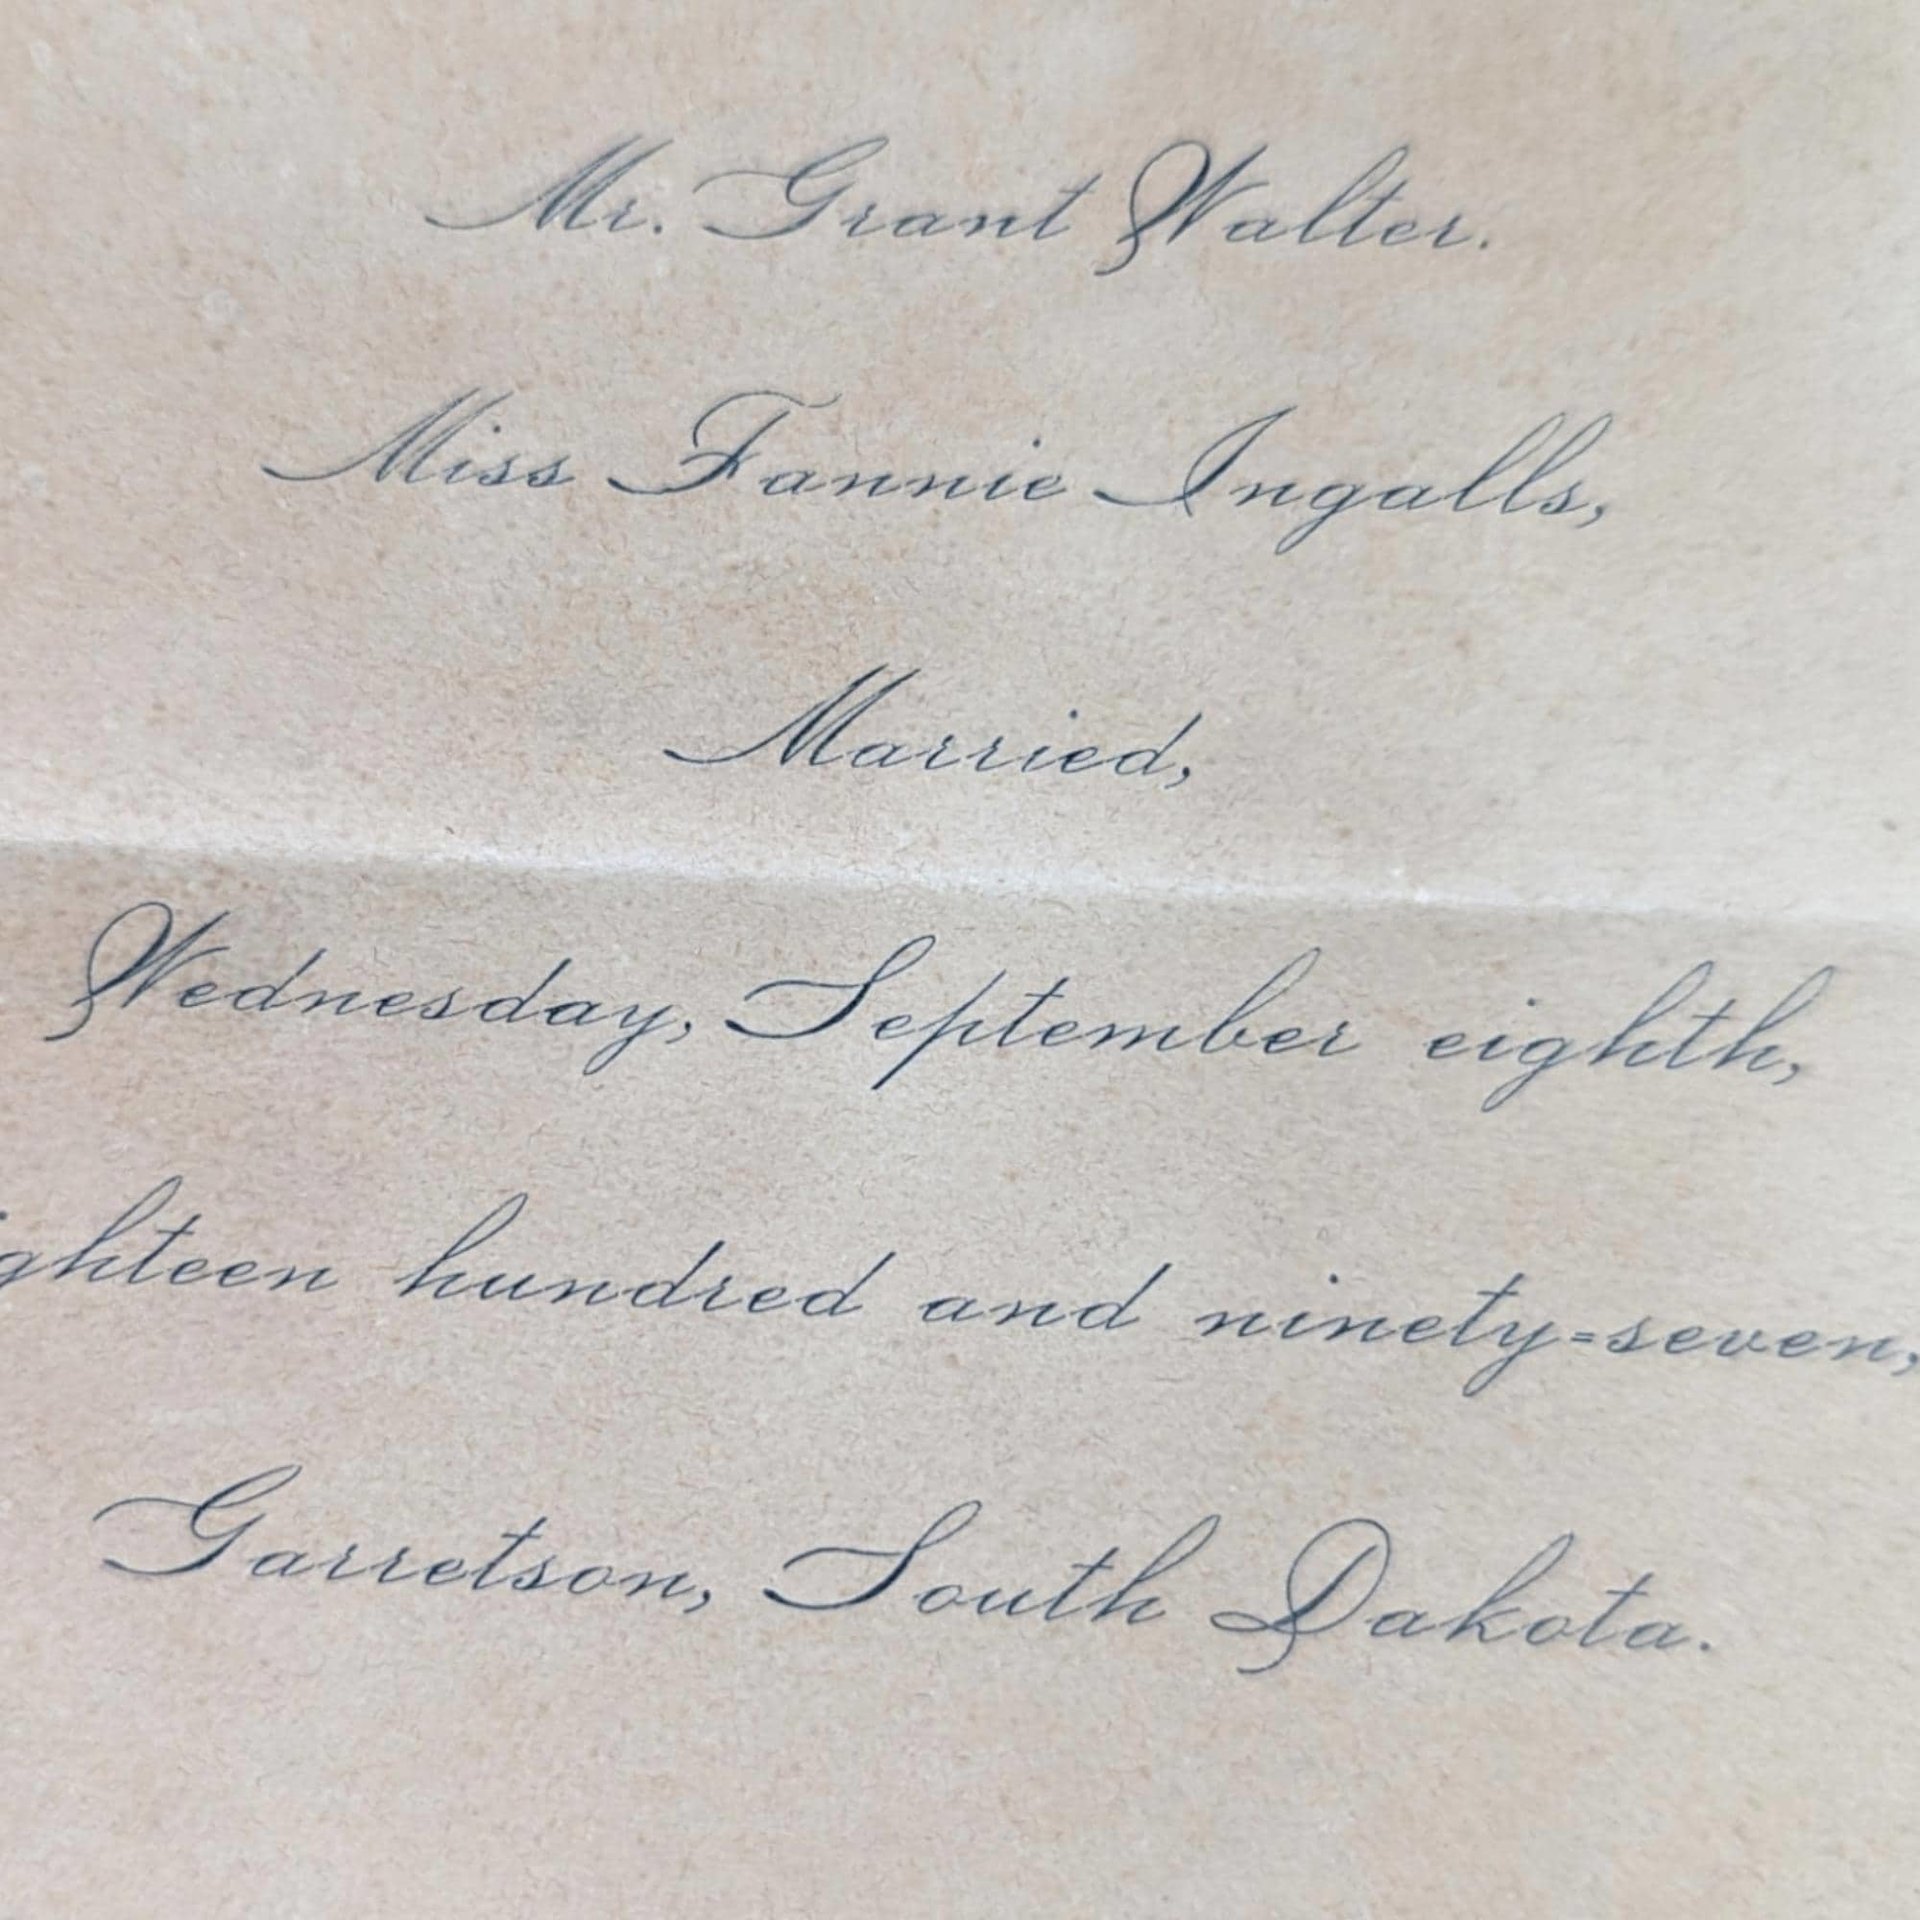 Mr. Grant Walter.
Miss Fannie Ingalls,
Married,
Wednesday, September eighth,
ighteen hundred and ninety=seven,
Garretson, South Dakota.